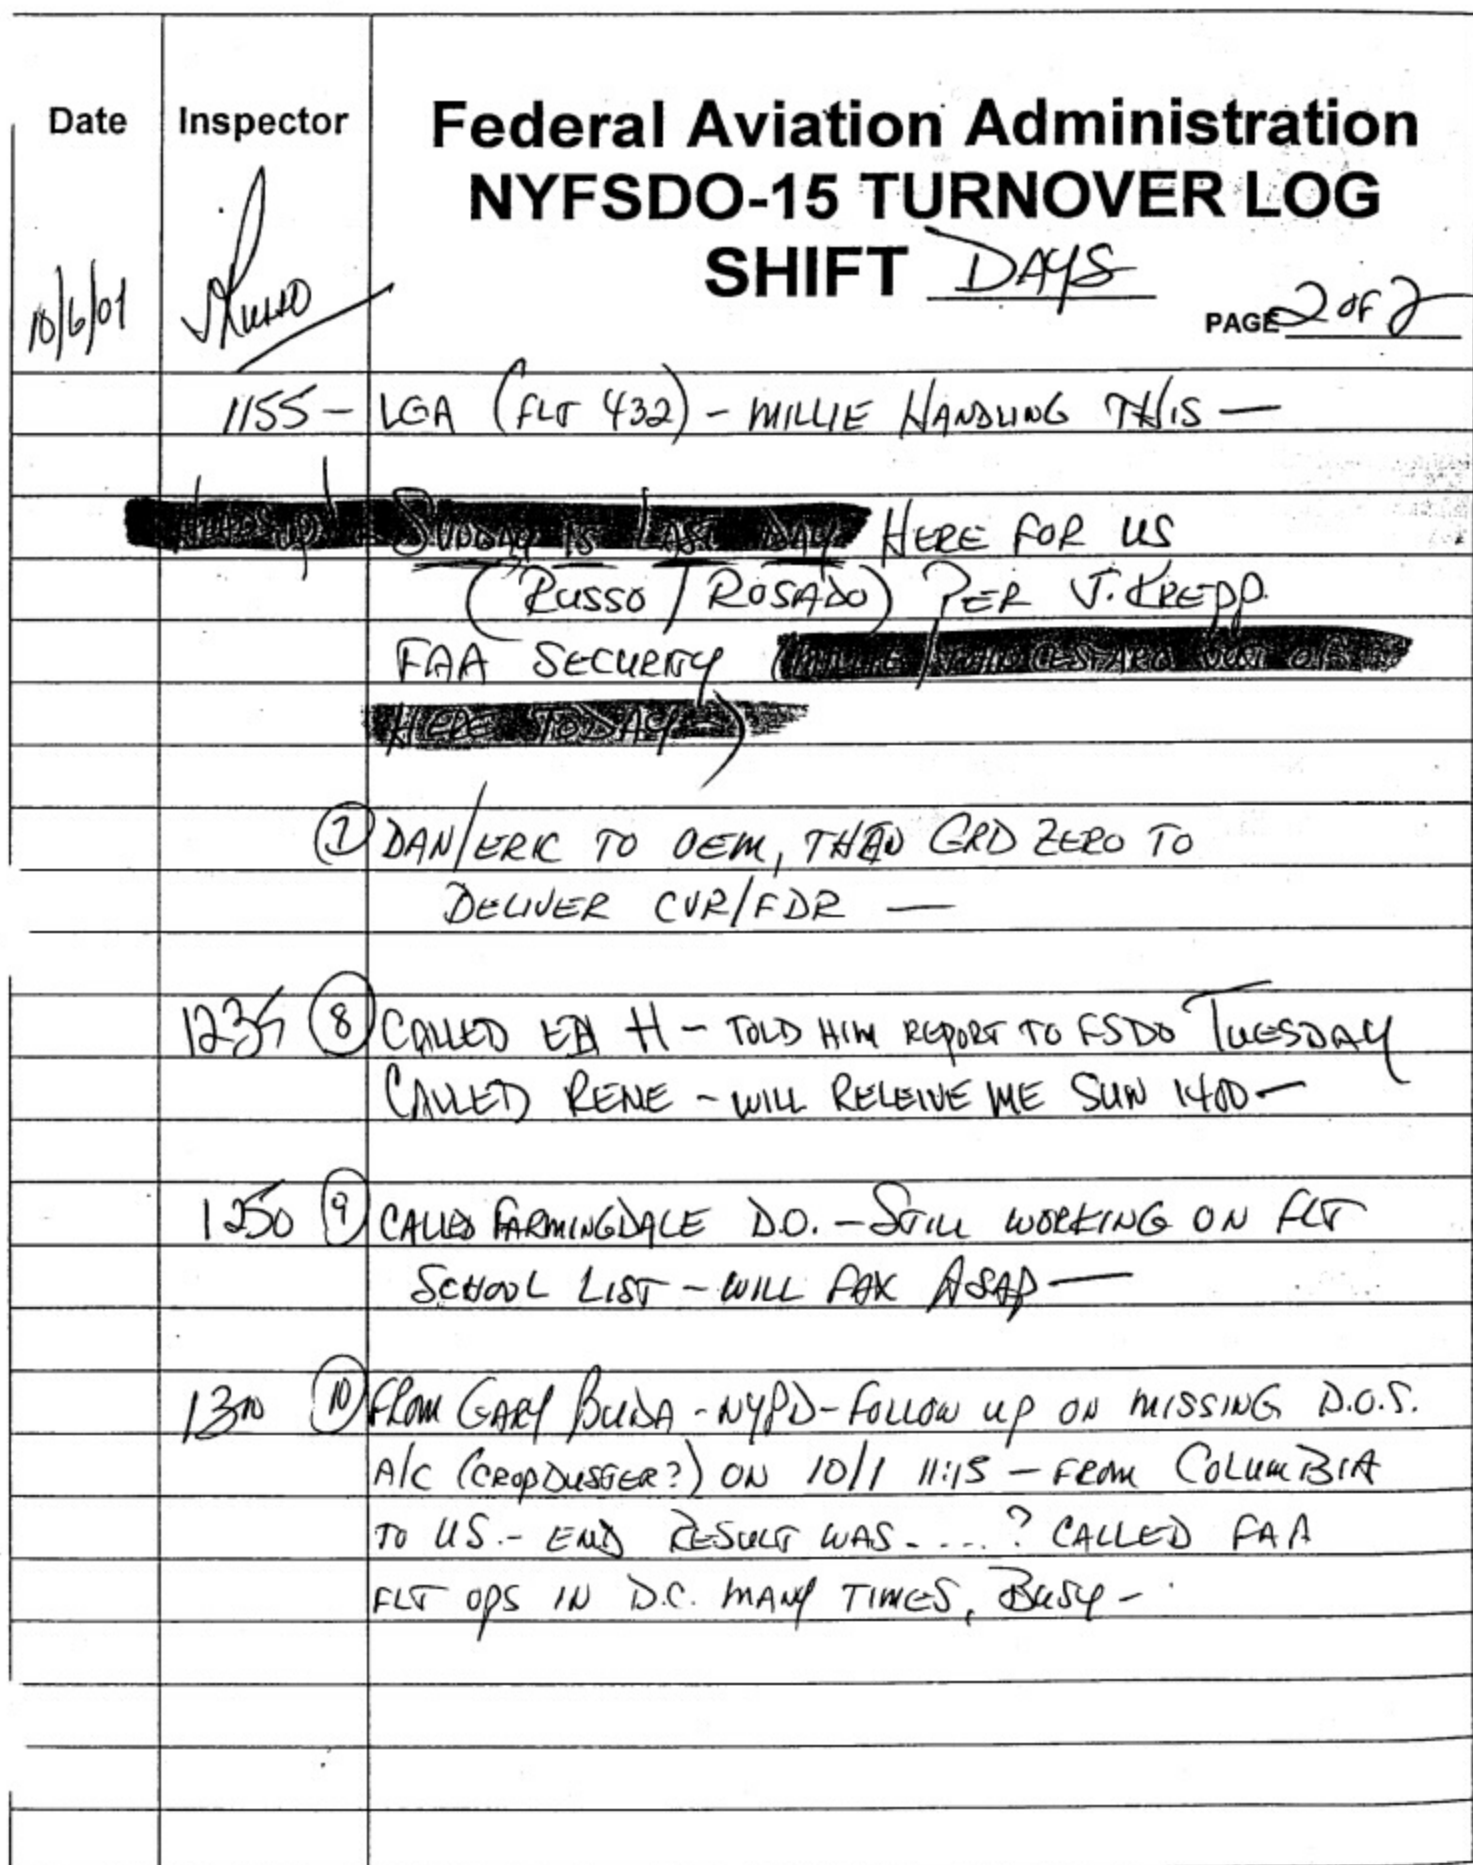 Date
Inspector
Federal Aviation Administration
NYFSDO-15 TURNOVER LOG
SHIFT DAYS
PAGE 2 OF 2
10/6/01
Russo
1155- LGA (FLT 432) - MILLIE HANDLING THIS —
HEADS UP! SUNDAY IS LAST DAY HERE FOR US
(RUSSO / ROSADO) PER J. KREPP
FAA SECURITY (MILLIE /
HERE TODAY -)
7 DAN/ERIC TO OEM, THEN GRD ZERO TO
DELIVER CVR/FDR —
1235 8 CALLED ED H - TOLD HIM REPORT TO FSDO TUESDAY
CALLED RENE - WILL RELEIVE ME SUN 1400 -
1250 9 CALLED FARMINGDALE D.O. - STILL WORKING ON FLT
SCHOOL LIST - WILL FAX ASAP —
1300 10 FROM GARY BUDA - NYPD - FOLLOW UP ON MISSING D.O.S.
A/C (CROPDUSTER?) ON 10/1 11:15 - FROM COLUMBIA
TO US. - END RESULT WAS - ...? CALLED FAA
FLT OPS IN D.C. MANY TIMES, BUSY -